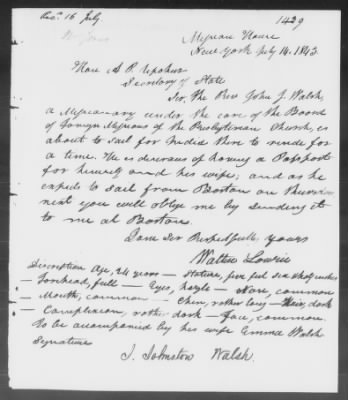 Recd. 16 July
1429
Mission House
New-York July 14. 1843.
Hon. A. P. Upshur
Secretary of State
Sir, the Rev. John J. Walsh,
a Missionary under the care of the Board
of Foreign Missions of the Presbyterian Church, is
about to sail for India there to reside for
a time. He is desirous of having a Passport
for himself and his wife; and as he
expects to sail from Boston on Thursday
next you will oblige me by sending it
to me at Boston.
I am Sir Respectfully yours
Walter Lowrie
Description Age, 24 years — Stature, five feet six inches
Forehead, full — Eyes, hazle — Nose, common
— Mouth, common — Chin, rather long — Hair, dark
— Complexion, rather dark — Face, common
to be accompanied by his wife Emma Walsh
Signature
J. Johnston Walsh.